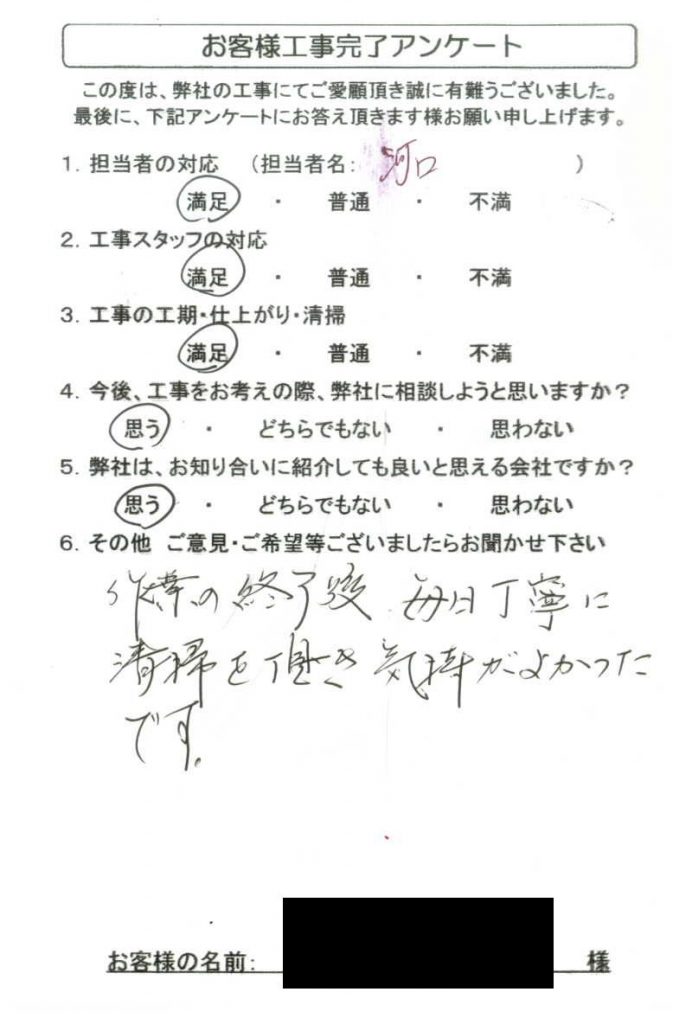 お客様工事完了アンケート
この度は、弊社の工事にてご愛顧頂き誠に有難うございました。
最後に、下記アンケートにお答え頂きます様お願い申し上げます。
1. 担当者の対応　（担当者名: 河口　）
満足 ・ 普通 ・ 不満
2. 工事スタッフの対応
満足 ・ 普通 ・ 不満
3. 工事の工期・仕上がり・清掃
満足 ・ 普通 ・ 不満
4. 今後、工事をお考えの際、弊社に相談しようと思いますか？
思う ・ どちらでもない ・ 思わない
5. 弊社は、お知り合いに紹介しても良いと思える会社ですか？
思う ・ どちらでもない ・ 思わない
6. その他　ご意見・ご希望等ございましたらお聞かせ下さい
作業の終了後 毎日丁寧に
清掃を頂き 気持がよかった
です。
お客様の名前:　様